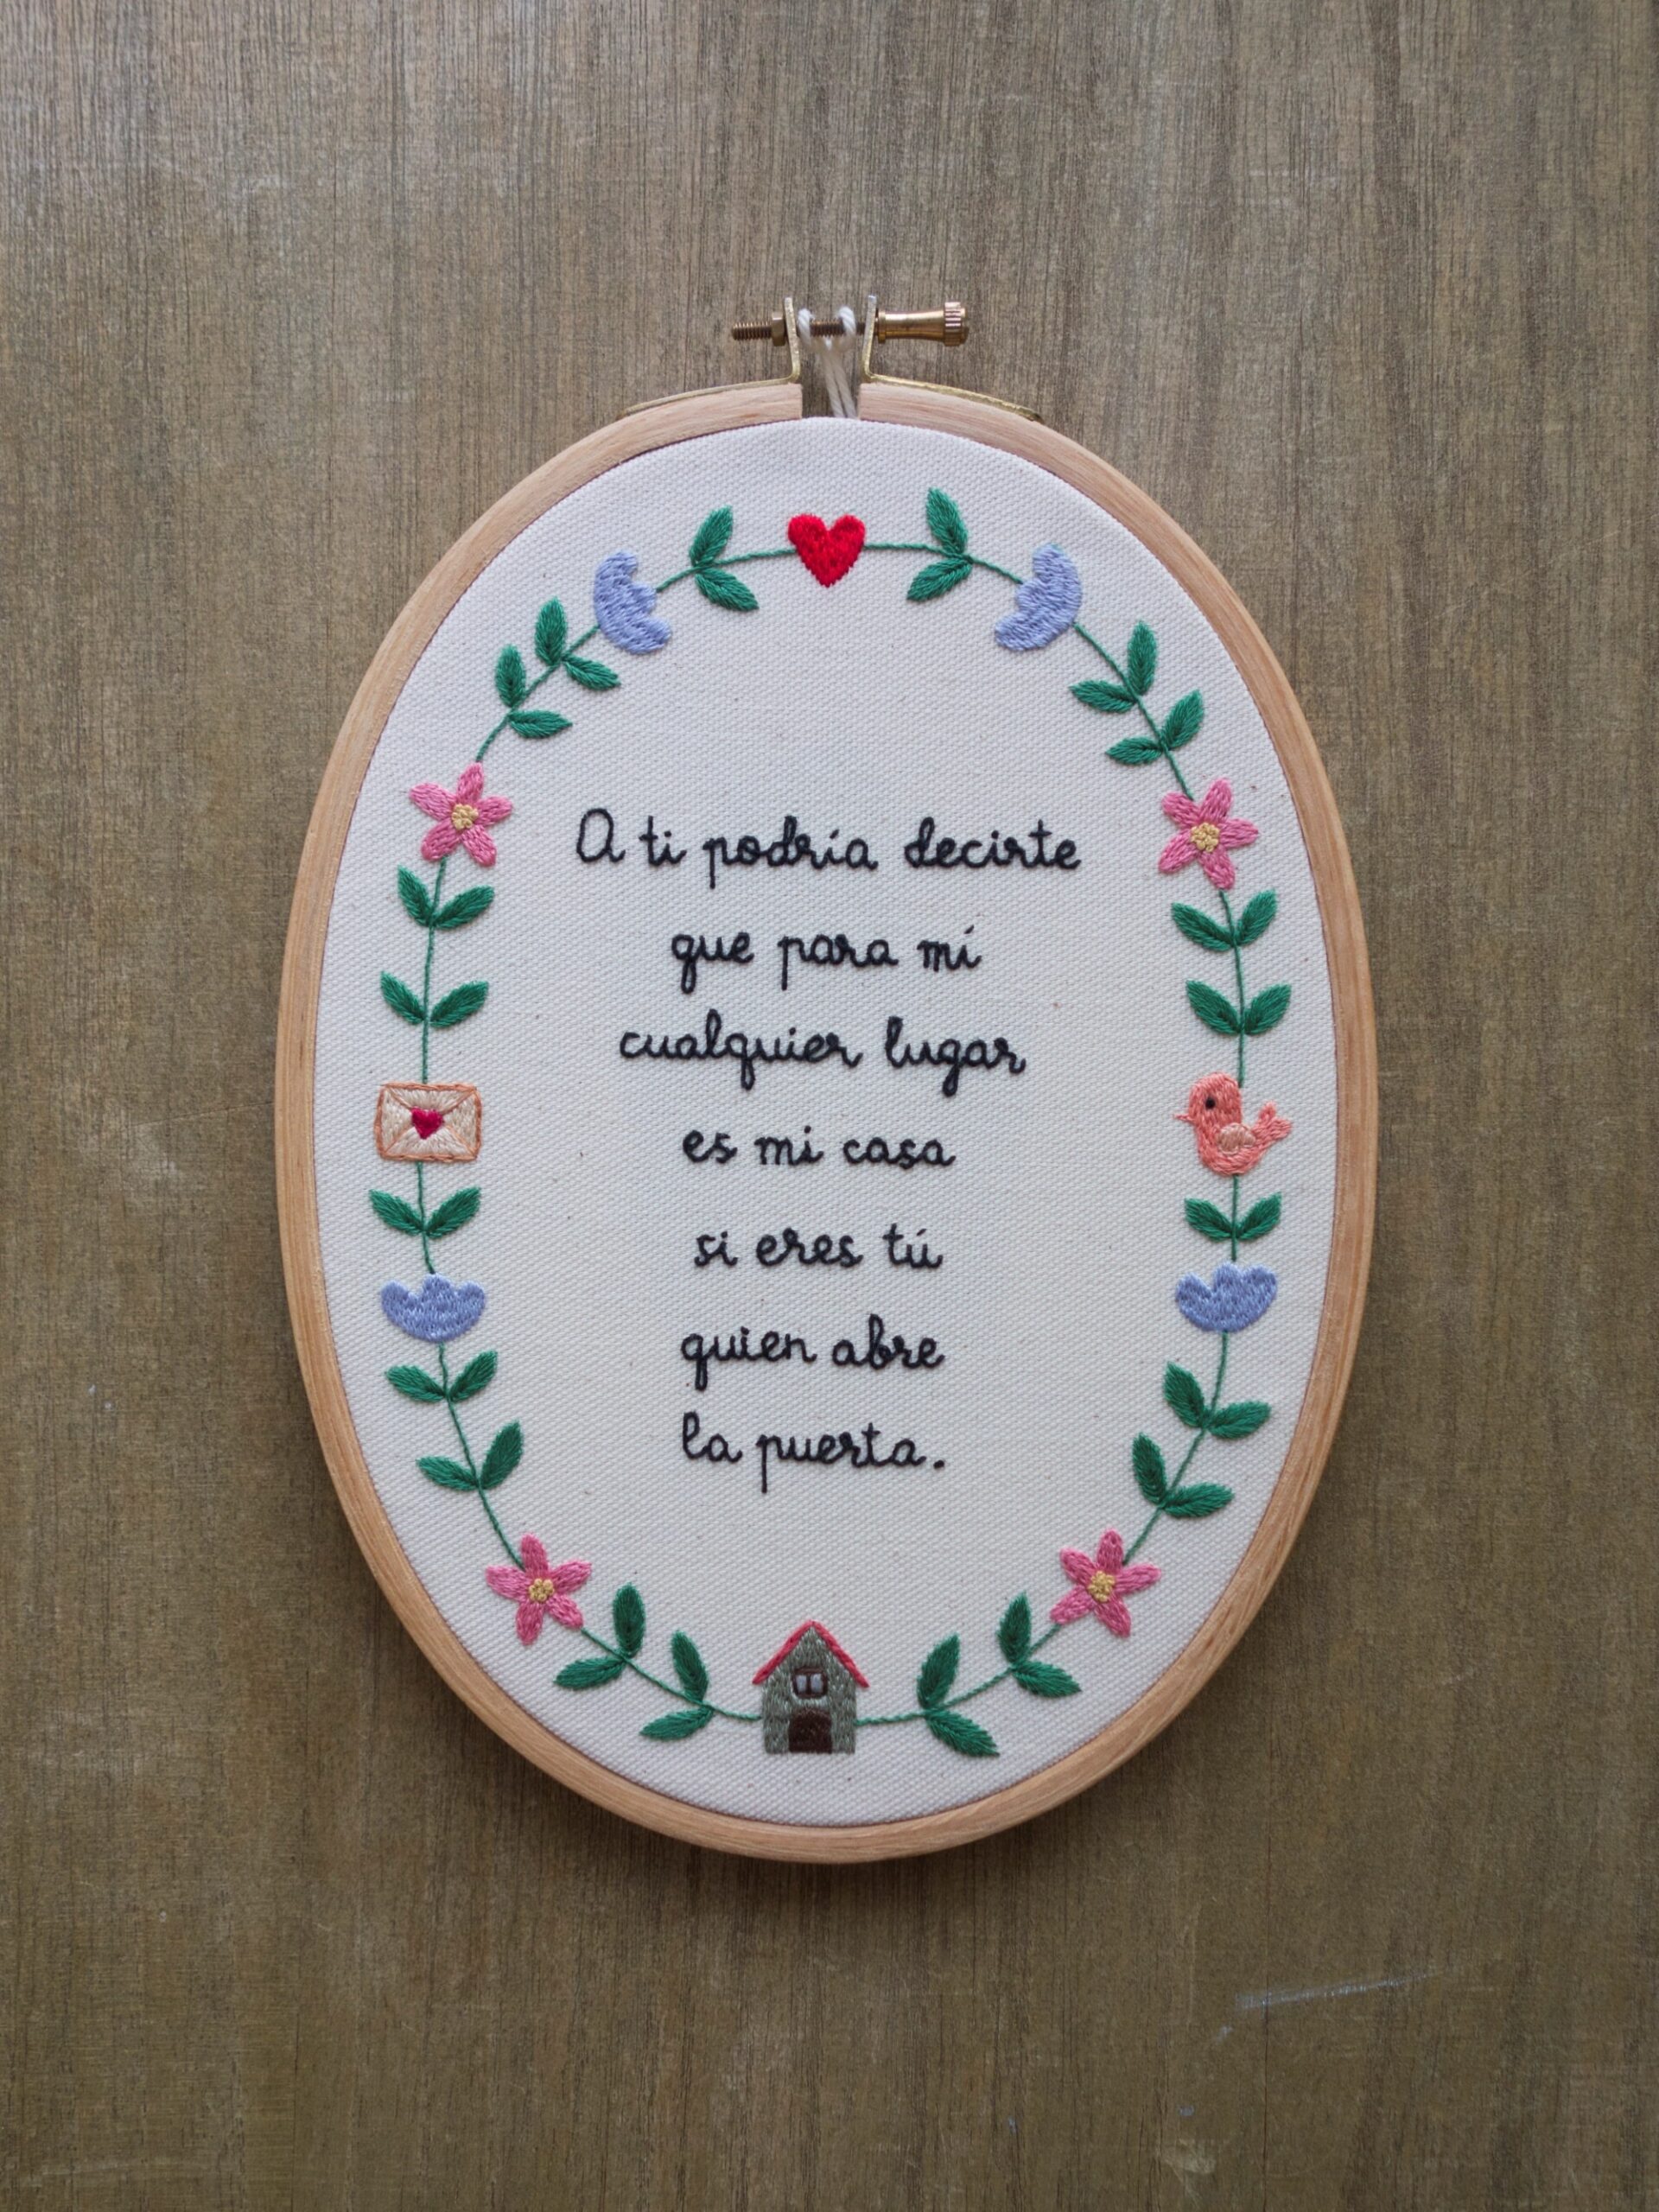 A ti podría decirte
que para mí
cualquier lugar
es mi casa
si eres tú
quien abre
la puerta.